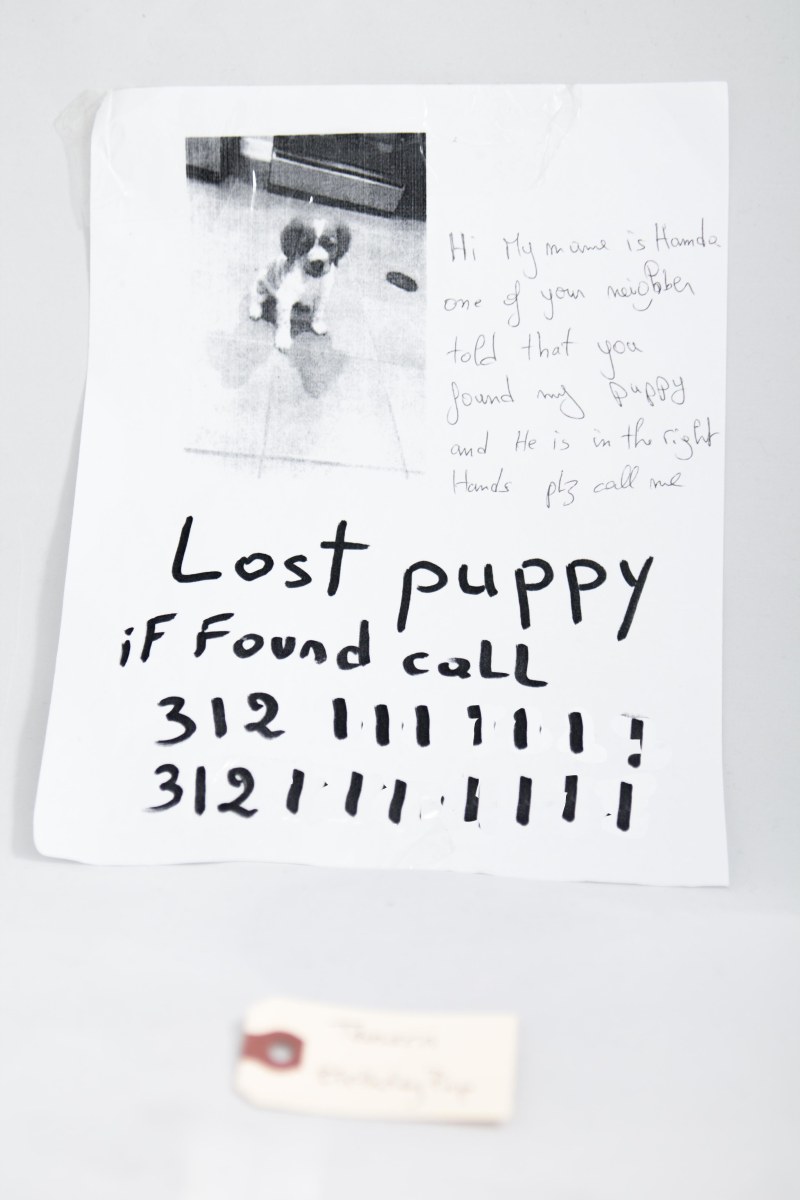 Hi My name is Hamda
one of your neighber
told that you
found my puppy
and He is in the right
Hands plz call me
Lost puppy
iF Found call
312 111 1111
312 111 1111